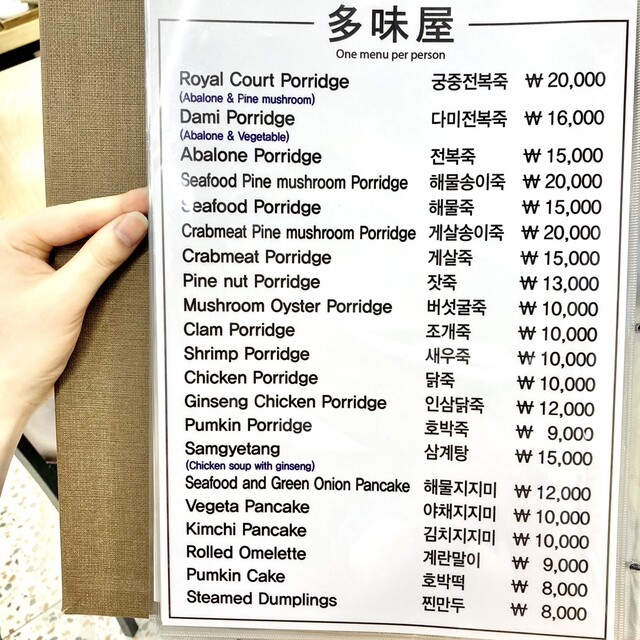 多味屋
One menu per person
Royal Court Porridge 궁중전복죽 ₩ 20,000
(Abalone & Pine mushroom)
Dami Porridge 다미전복죽 ₩ 16,000
(Abalone & Vegetable)
Abalone Porridge 전복죽 ₩ 15,000
Seafood Pine mushroom Porridge 해물송이죽 ₩ 20,000
Seafood Porridge 해물죽 ₩ 15,000
Crabmeat Pine mushroom Porridge 게살송이죽 ₩ 20,000
Crabmeat Porridge 게살죽 ₩ 15,000
Pine nut Porridge 잣죽 ₩ 13,000
Mushroom Oyster Porridge 버섯굴죽 ₩ 10,000
Clam Porridge 조개죽 ₩ 10,000
Shrimp Porridge 새우죽 ₩ 10,000
Chicken Porridge 닭죽 ₩ 10,000
Ginseng Chicken Porridge 인삼닭죽 ₩ 12,000
Pumkin Porridge 호박죽 ₩ 9,000
Samgyetang 삼계탕 ₩ 15,000
(Chicken soup with ginseng)
Seafood and Green Onion Pancake 해물지지미 ₩ 12,000
Vegeta Pancake 야채지지미 ₩ 10,000
Kimchi Pancake 김치지지미 ₩ 10,000
Rolled Omelette 계란말이 ₩ 9,000
Pumkin Cake 호박떡 ₩ 8,000
Steamed Dumplings 찐만두 ₩ 8,000